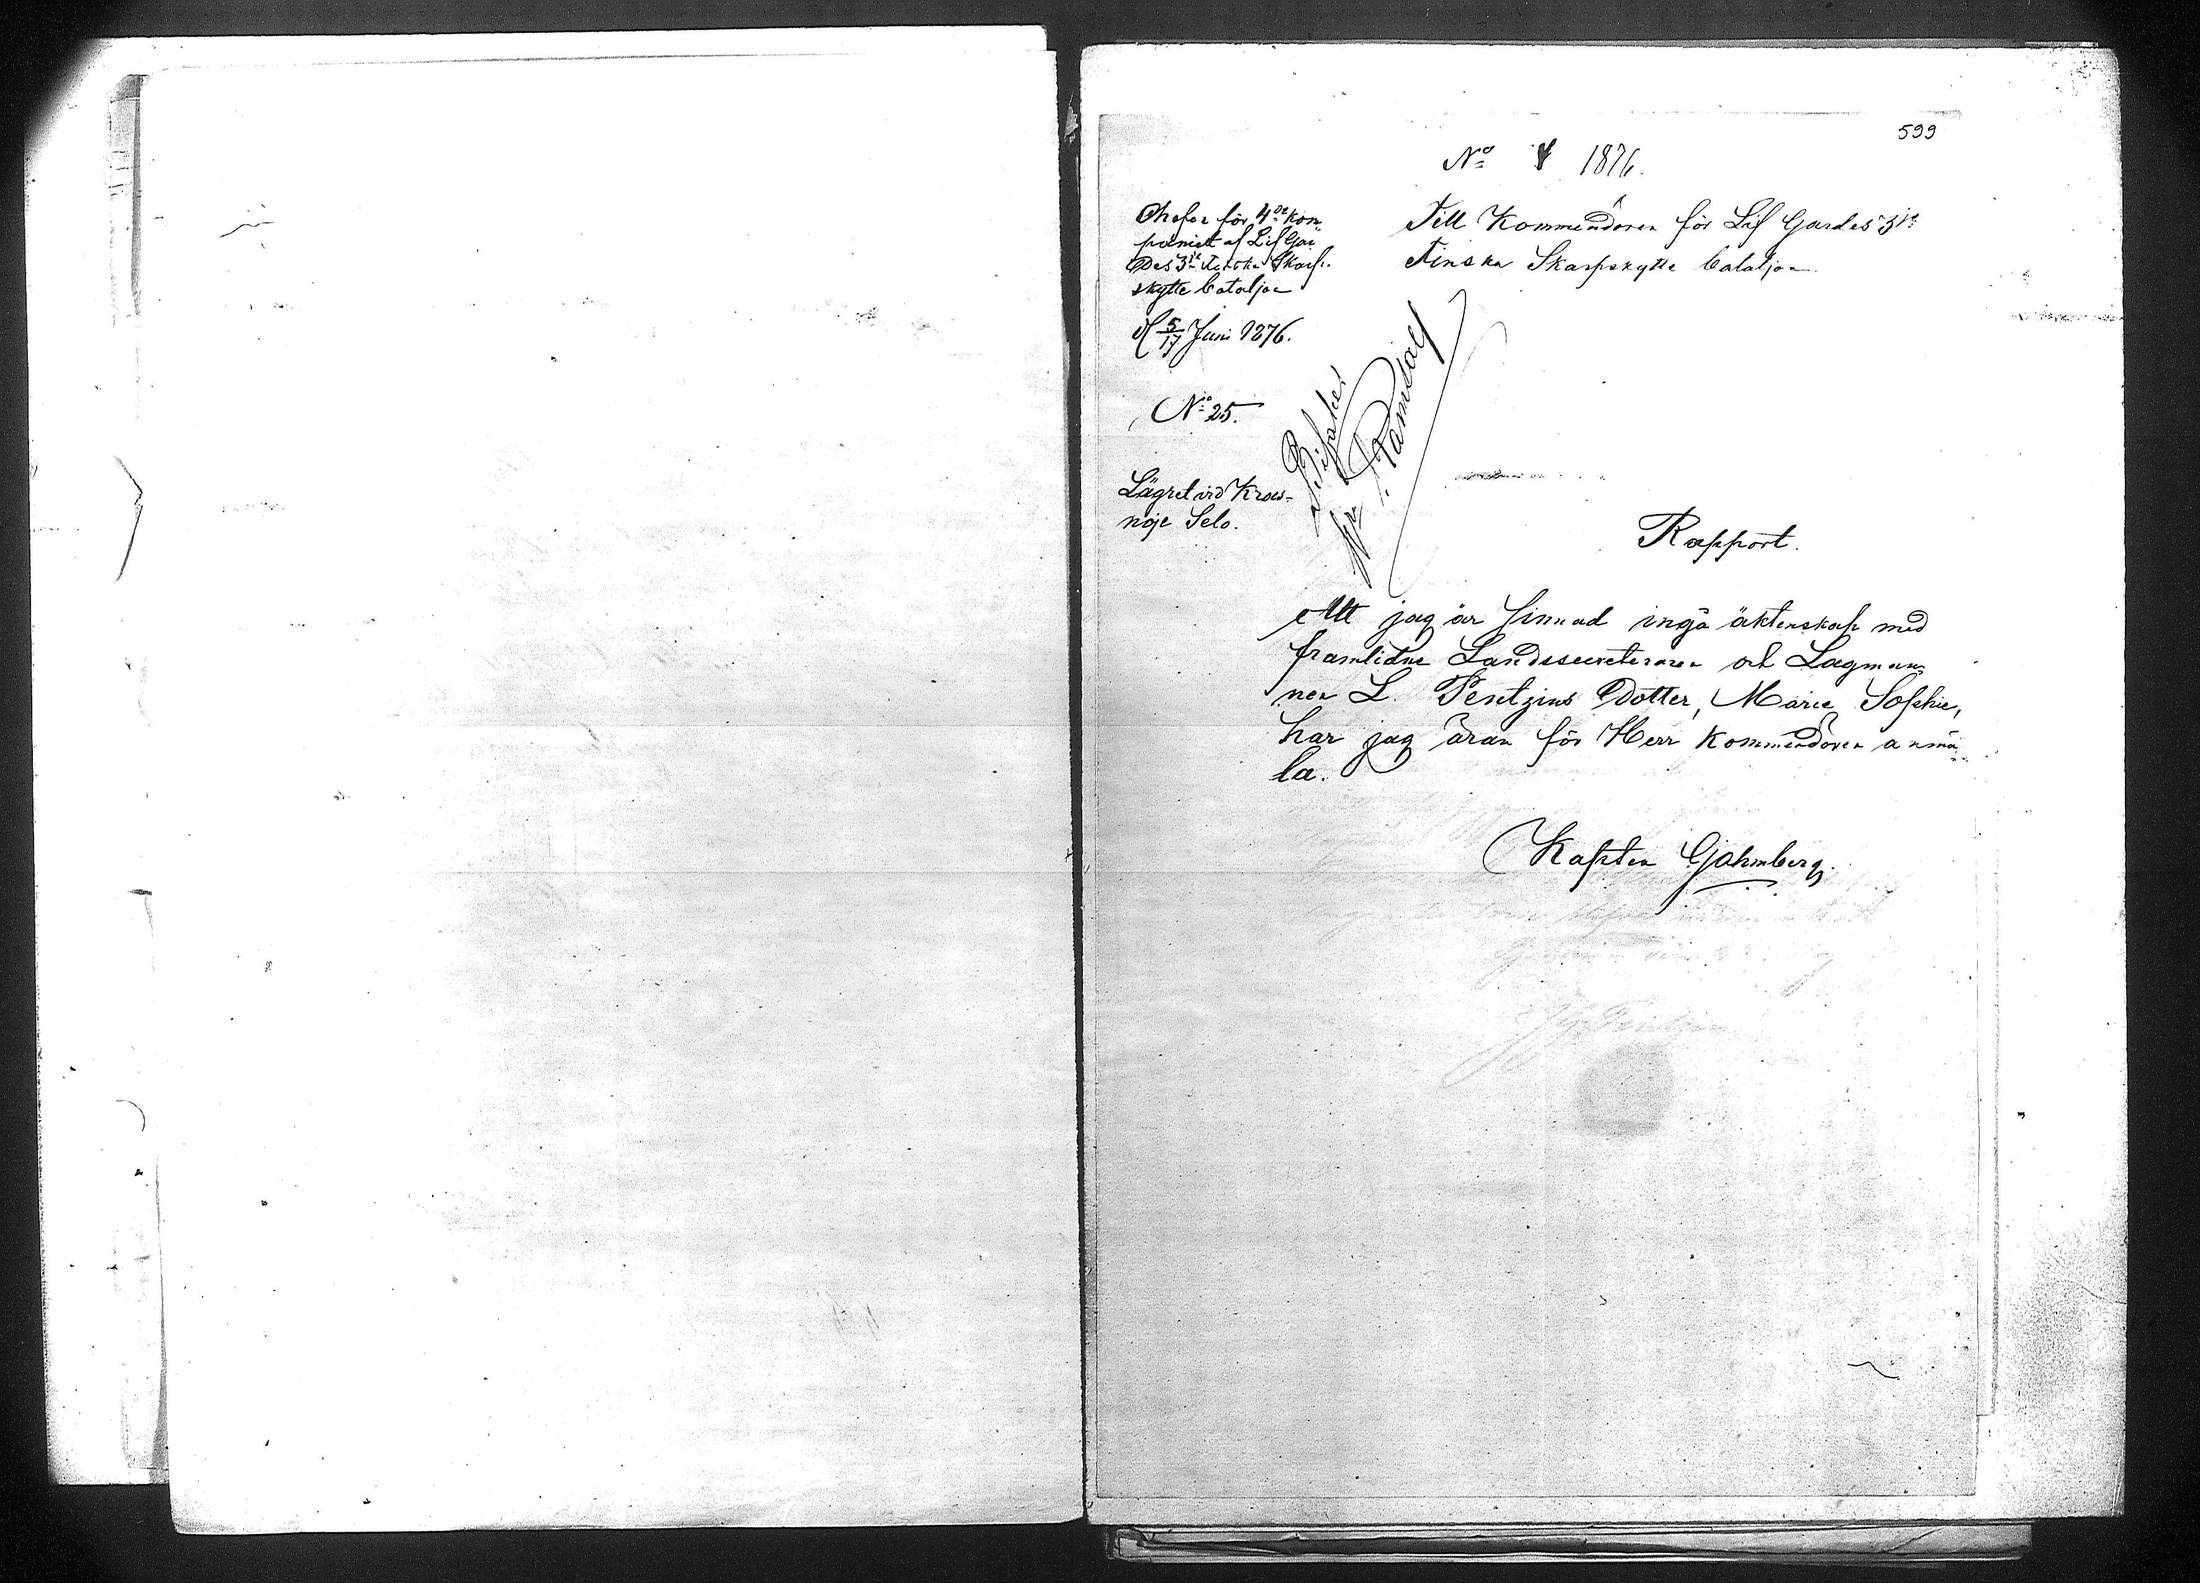 599
No 4 1876.
Chefen för 4de kom-
paniet af Lif Gar-
des 3je Finska Skarp-
skytte bataljon
d 5/17 Juni 1876.
No 25.
Lägret vid Kras-
noje Selo.
Till Kommendören för Lif Gardes 3je
Finska Skarpskytte bataljon.
Bifalles
Ramsay
Rapport.
Att jag är sinnad ingå äktenskap med
framlidne Landssecreteraren och Lagman-
nen L. Pentzins Dotter, Marie Sophie,
har jag äran för Herr Kommendören anmä-
la.
Kapten Gahmberg.